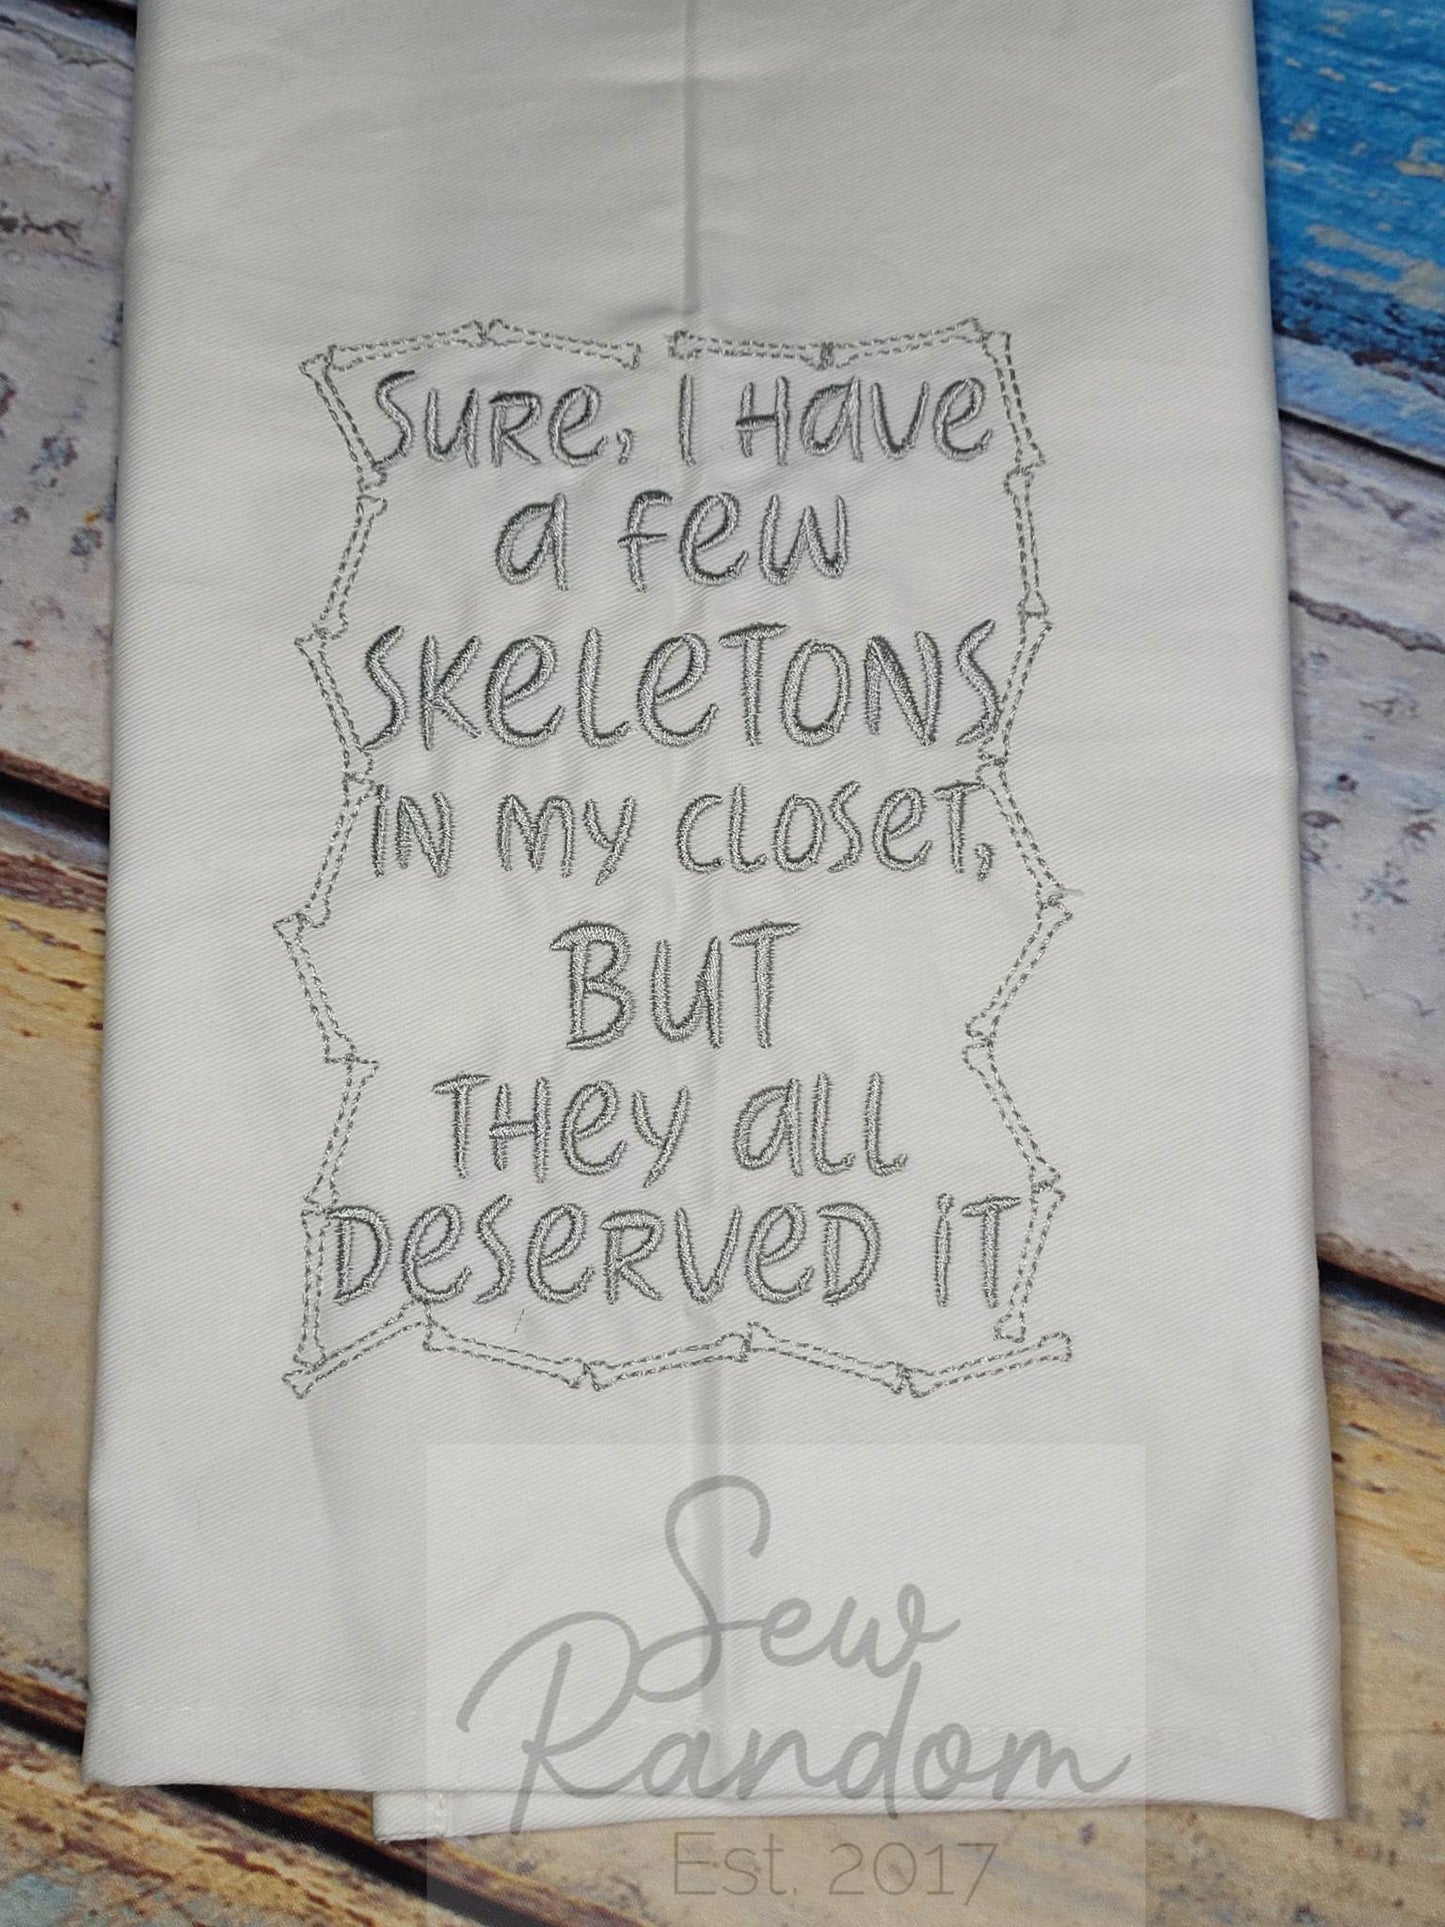 Sure, I Have
a few
Skeletons
in my closet,
But
they all
deserved it
Sew
Random
Est. 2017